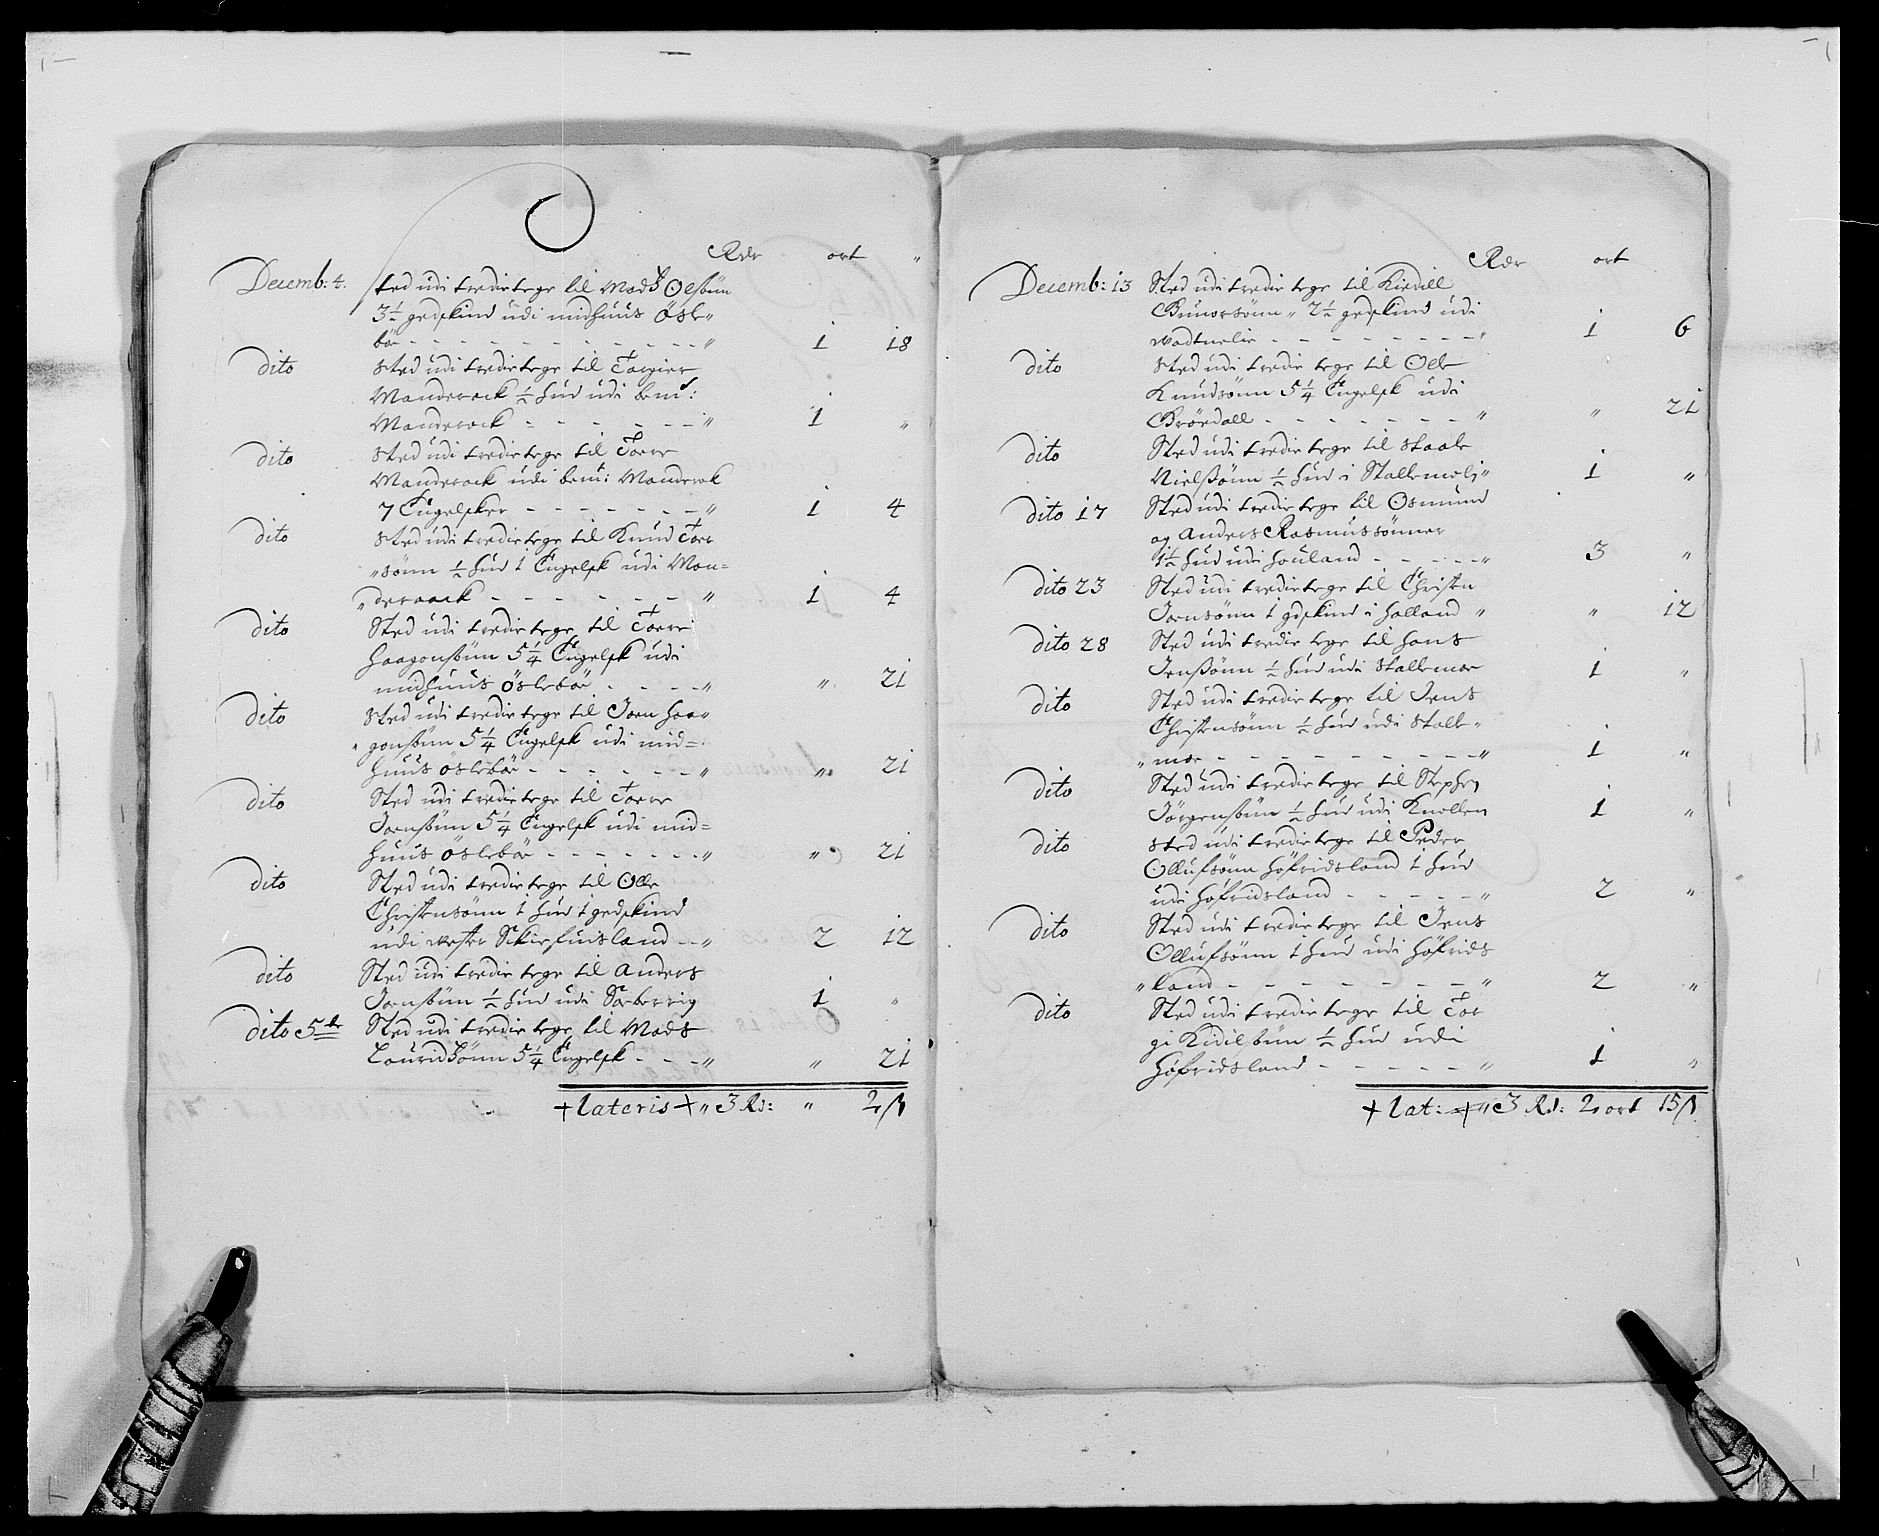 Rdr ort "
Decemb: 4. Sted udi tredie tege til Mads Olsøun
3½ gedskind udi midhuus Ösle"
bör - - - - - - - - - " 1 18
dito Sted udi tredie tege til Torgier
Manderack ½ hud udi bem:
Manderack - - - - - - " 1 "
dito Sted udi tredie tege til Torre
Manderack udi bemt: Manderak
7 Engelsker - - - - - - " 1 4
dito Sted udi tredie tege til Knud Torr
"sönn ½ hud 1 Engelsk udi Man=
"deraack - - - - - - " 1 4
dito Sted udi tredie tege til Torre
Haagensøun 5¼ Engelsk udi
midhuus Öslebör - - - - " " 21
dito Sted udi tredie tege til Joen Haa"
"gensøun 5¼ Engelsk udi mid=
huus öslebör - - - - - - " " 21
dito Sted udi tredie tege til Torre
Joensøun 5¼ Engelsk udi mid=
huus öslebör - - - - - - " " 21
dito Sted udi tredie tege til Olle
Christensönn 1 hud 1 gedskind
udi wester Skiefuisland - - " 2 12
dito Sted udi tredie tege til Anders
Joensøun ½ hud udi 1 "
dito 5te Sted udi tredie tege til Mads
Lauridsönn 5¼ Engelsk - - - " " 21
+ lateris + " 3 Rd: " 2 β
Rdr ort
Decemb: 13 Sted udi tredie tege til Kiedill
Gunorsönn " 2½ gedskind udi
wadtnelie - - - - - - - - " 1 6
dito Sted udi tredie tege til Olle
Knudsönn 5¼ Engelsk udi
Brördall - - - - - - - - " " 21
dito Sted udi tredie tege til Staale
Nielsønn ½ hud i Stallemoli" 1 "
dito 17 Sted udi tredie tege til Osmund
og Anders Rasmussönner
1½ hud udi houland - - - - - " 3 "
dito 23 Sted udi tredie tege til Christen
Joensönn 1 gedskind i Holland " " 12
dito 28 Sted udi tredie tege til Hans
Jensönn ½ hud udi Stallemoe 1 "
dito Sted udi tredie tege til Jens
Christensönn ½ hud udi Stalle"
"moe - - - - - - - - - " 1 "
dito Sted udi tredie tege til Stephen
Jörgensøun ½ hud udi Knollen 1 "
dito Sted udi tredie tege til Peder
Ollufsönn Höfridsland 1 hud
udi Höfridsland - - - - - " 2 "
dito Sted udi tredie tege til Jens
Ollufsönn 1 hud udi Höfrids
"land - - - - - - - - " 2 "
dito Sted udi tredie tege til Tor
gi Kidilsøun ½ hud udi
Höfridsland - - - - - " 1 "
+ lat: + " 3 Rd: 2 ort 15 β